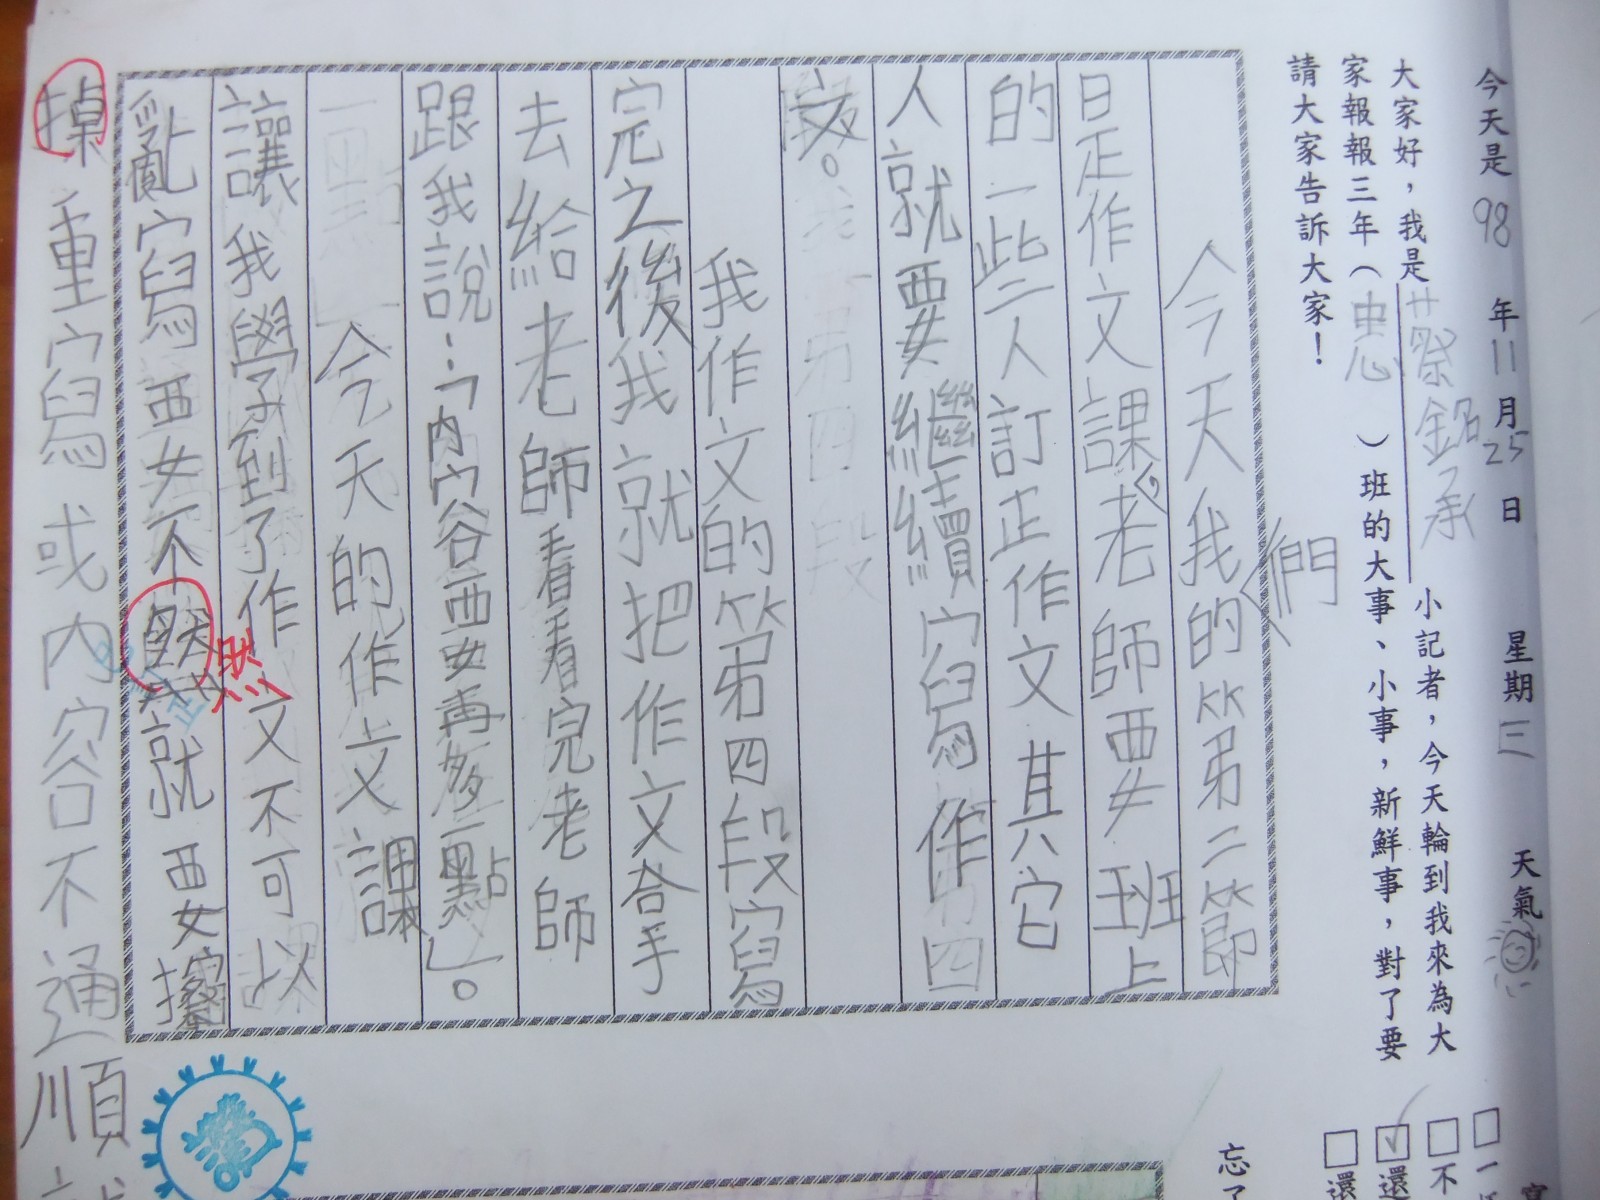 今天是98年11月25日 星期三 天氣
大家好，我是蔡銘承小記者，今天輪到我來為大
家報報三年（忠）班的大事、小事，新鮮事，對了要
請大家告訴大家！
們
今天我的第二節
日是作文課。老師要班上
的一些人訂正作文其它
人就要繼續寫作四
段。
我作文的第四段寫
完之後我就把作文拿
去給老師看看完老師
跟我說：「內容要再多一點」。
今天的作文課
讓我學到了作文不可以
亂寫要不然就要擦
掉重寫或內容不通順
然
訂正
忘了
一
不
還
還